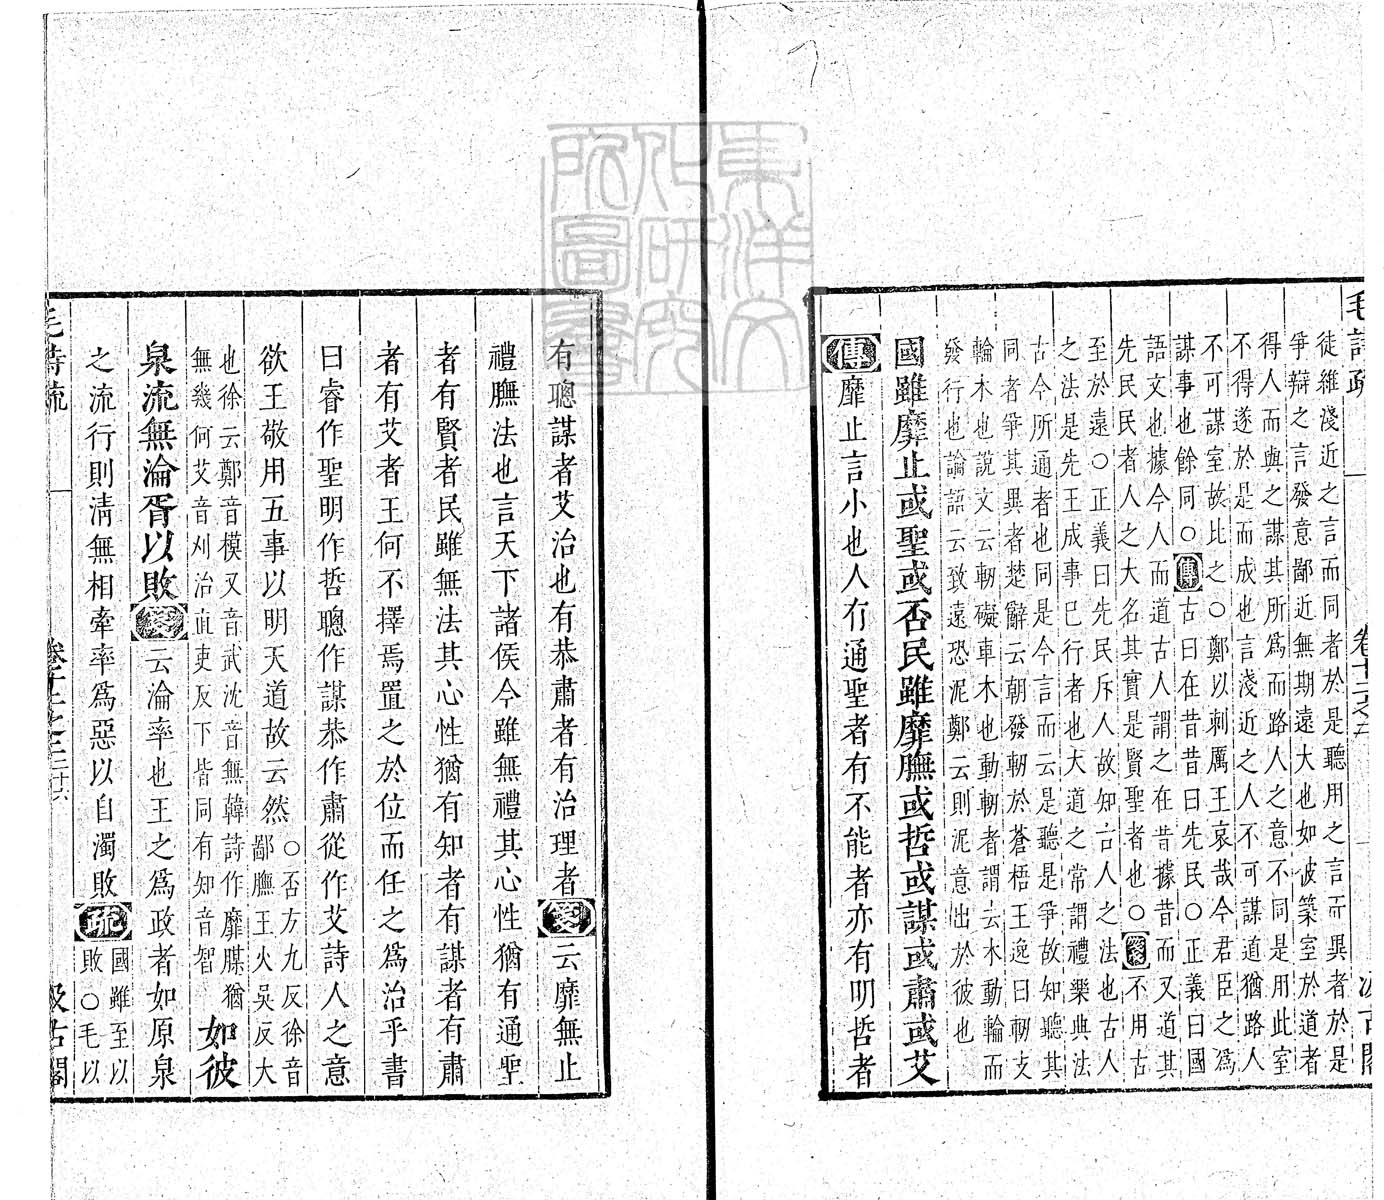 毛詩疏 卷十二之二 汲古閣
徒維淺近之言而同者於是聽用之言而異者於是
爭辯之言發意鄙近無期遠大也如彼築室於道者
得人而與之謀其所爲而路人之意不同是用此室
不得遂於是而成也言淺近之人不可謀道猶路人
不可謀室故比之○鄭以刺厲王哀哉今君臣之爲
謀事也餘同○傳古曰在昔昔曰先民○正義曰國
語文也據今人而道古人謂之在昔據昔而又道其
先民民者人之大名其實是賢聖者也○箋不用古
至於遠○正義曰先民斥人故知古人之法也古人
之法是先王成事已行者也大道之常謂禮樂典法
古今所通者也同是今言而云是聽是爭故知聽其
同者爭其異者楚辭云朝發軔於蒼梧王逸曰軔支
輪木也說文云軔礙車木也動軔者謂去木動輪而
發行也論語云致遠恐泥鄭云則泥意出於彼也
國雖靡止或聖或否民雖靡膴或哲或謀或肅或艾
傳靡止言小也人有通聖者有不能者亦有明哲者
有聰謀者艾治也有恭肅者有治理者箋云靡無止
禮膴法也言天下諸侯今雖無禮其心性猶有通聖
者有賢者民雖無法其心性猶有知者有謀者有肅
者有艾者王何不擇焉置之於位而任之爲治乎書
曰睿作聖明作哲聰作謀恭作肅從作艾詩人之意
欲王敬用五事以明天道故云然○否方九反徐音
鄙膴王火吳反大
也徐云鄭音模又音武沈音無韓詩作靡腜猶
無幾何艾音刈治直吏反下皆同有知音智
如彼
泉流無淪胥以敗箋云淪率也王之爲政者如原泉
之流行則清無相牽率爲惡以自濁敗疏國雖至以
敗○毛以
毛詩疏 卷十二之二 二十六 汲古閣
東洋文化研究所圖書